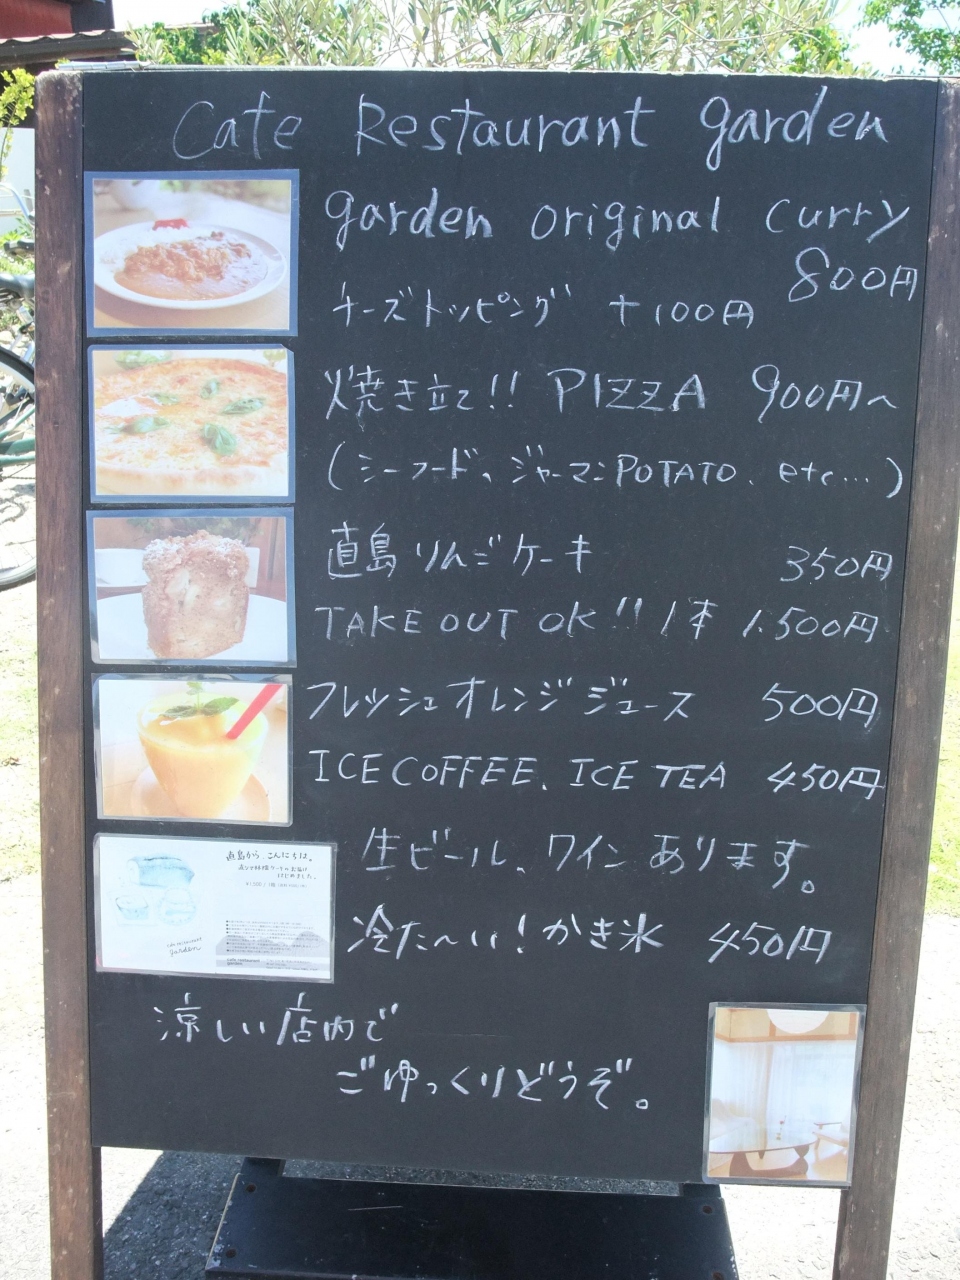 Cafe Restaurant garden
garden original curry
800円
チーズトッピング +100円
焼き立て!! PIZZA 900円~
(シーフード、ジャーマンPOTATO、etc...)
直島りんごケーキ 350円
TAKE OUT OK!! 1本 1.500円
フレッシュオレンジジュース 500円
ICE COFFEE、ICE TEA 450円
生ビール、ワインあります。
直島から、こんにちは。
はじめました。
cafe restaurant
garden
冷た〜い!かき氷 450円
涼しい店内で
ごゆっくりどうぞ。